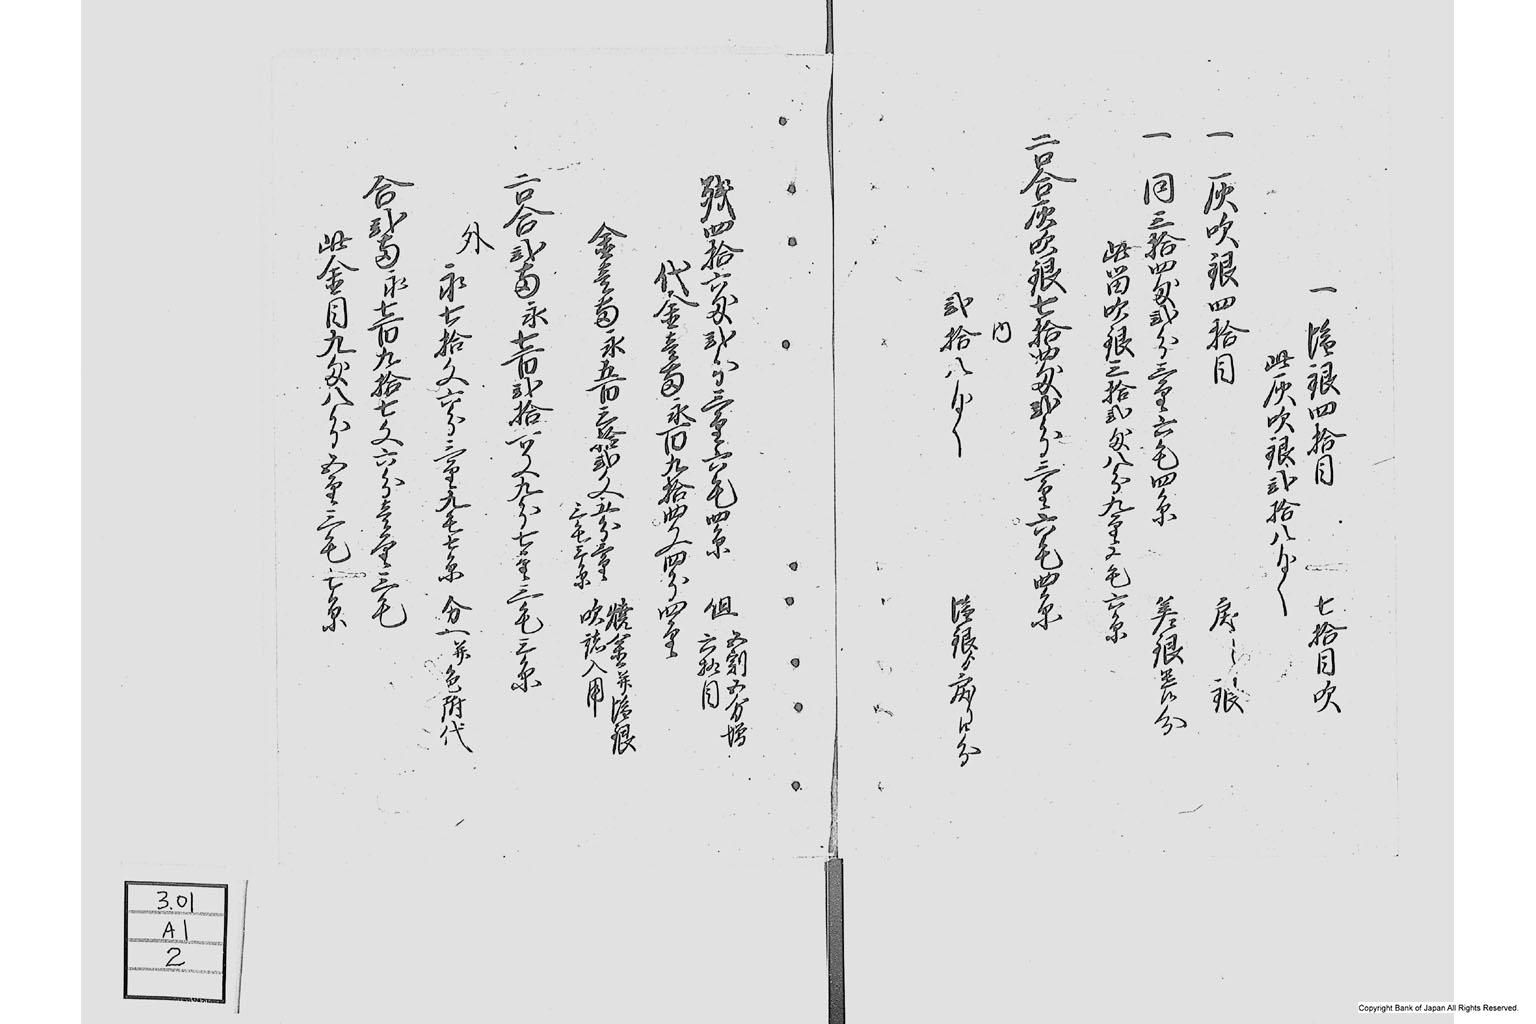 一 塩銀四拾目 七拾目吹
此灰吹銀弐拾八匁
一 灰吹銀四拾目 戻し銀
一 同三拾四匁弐分三厘六毛四糸 差銀出分
此留吹銀三拾弐匁八分九厘三毛六糸
二口合灰吹銀七拾四匁弐分三厘六毛四糸
内
弐拾八匁 塩銀戻口分
残四拾六匁弐分三厘六毛四糸 但
五割五分増
六拾目
代金壱両永百九拾四文四分四厘
金壱両永五百三拾弐文五分壱厘
三毛三糸
焼金并塩銀
吹諸入用
二口合弐両永七百弐拾六文九分七厘三毛三糸
外
永七拾文六分三厘九毛七糸 分一并色附代
合弐両永七百九拾七文六分壱厘三毛
此金目九匁八分五厘三毛七糸
3.01
A1
2
Copyright Bank of Japan All Rights Reserved.